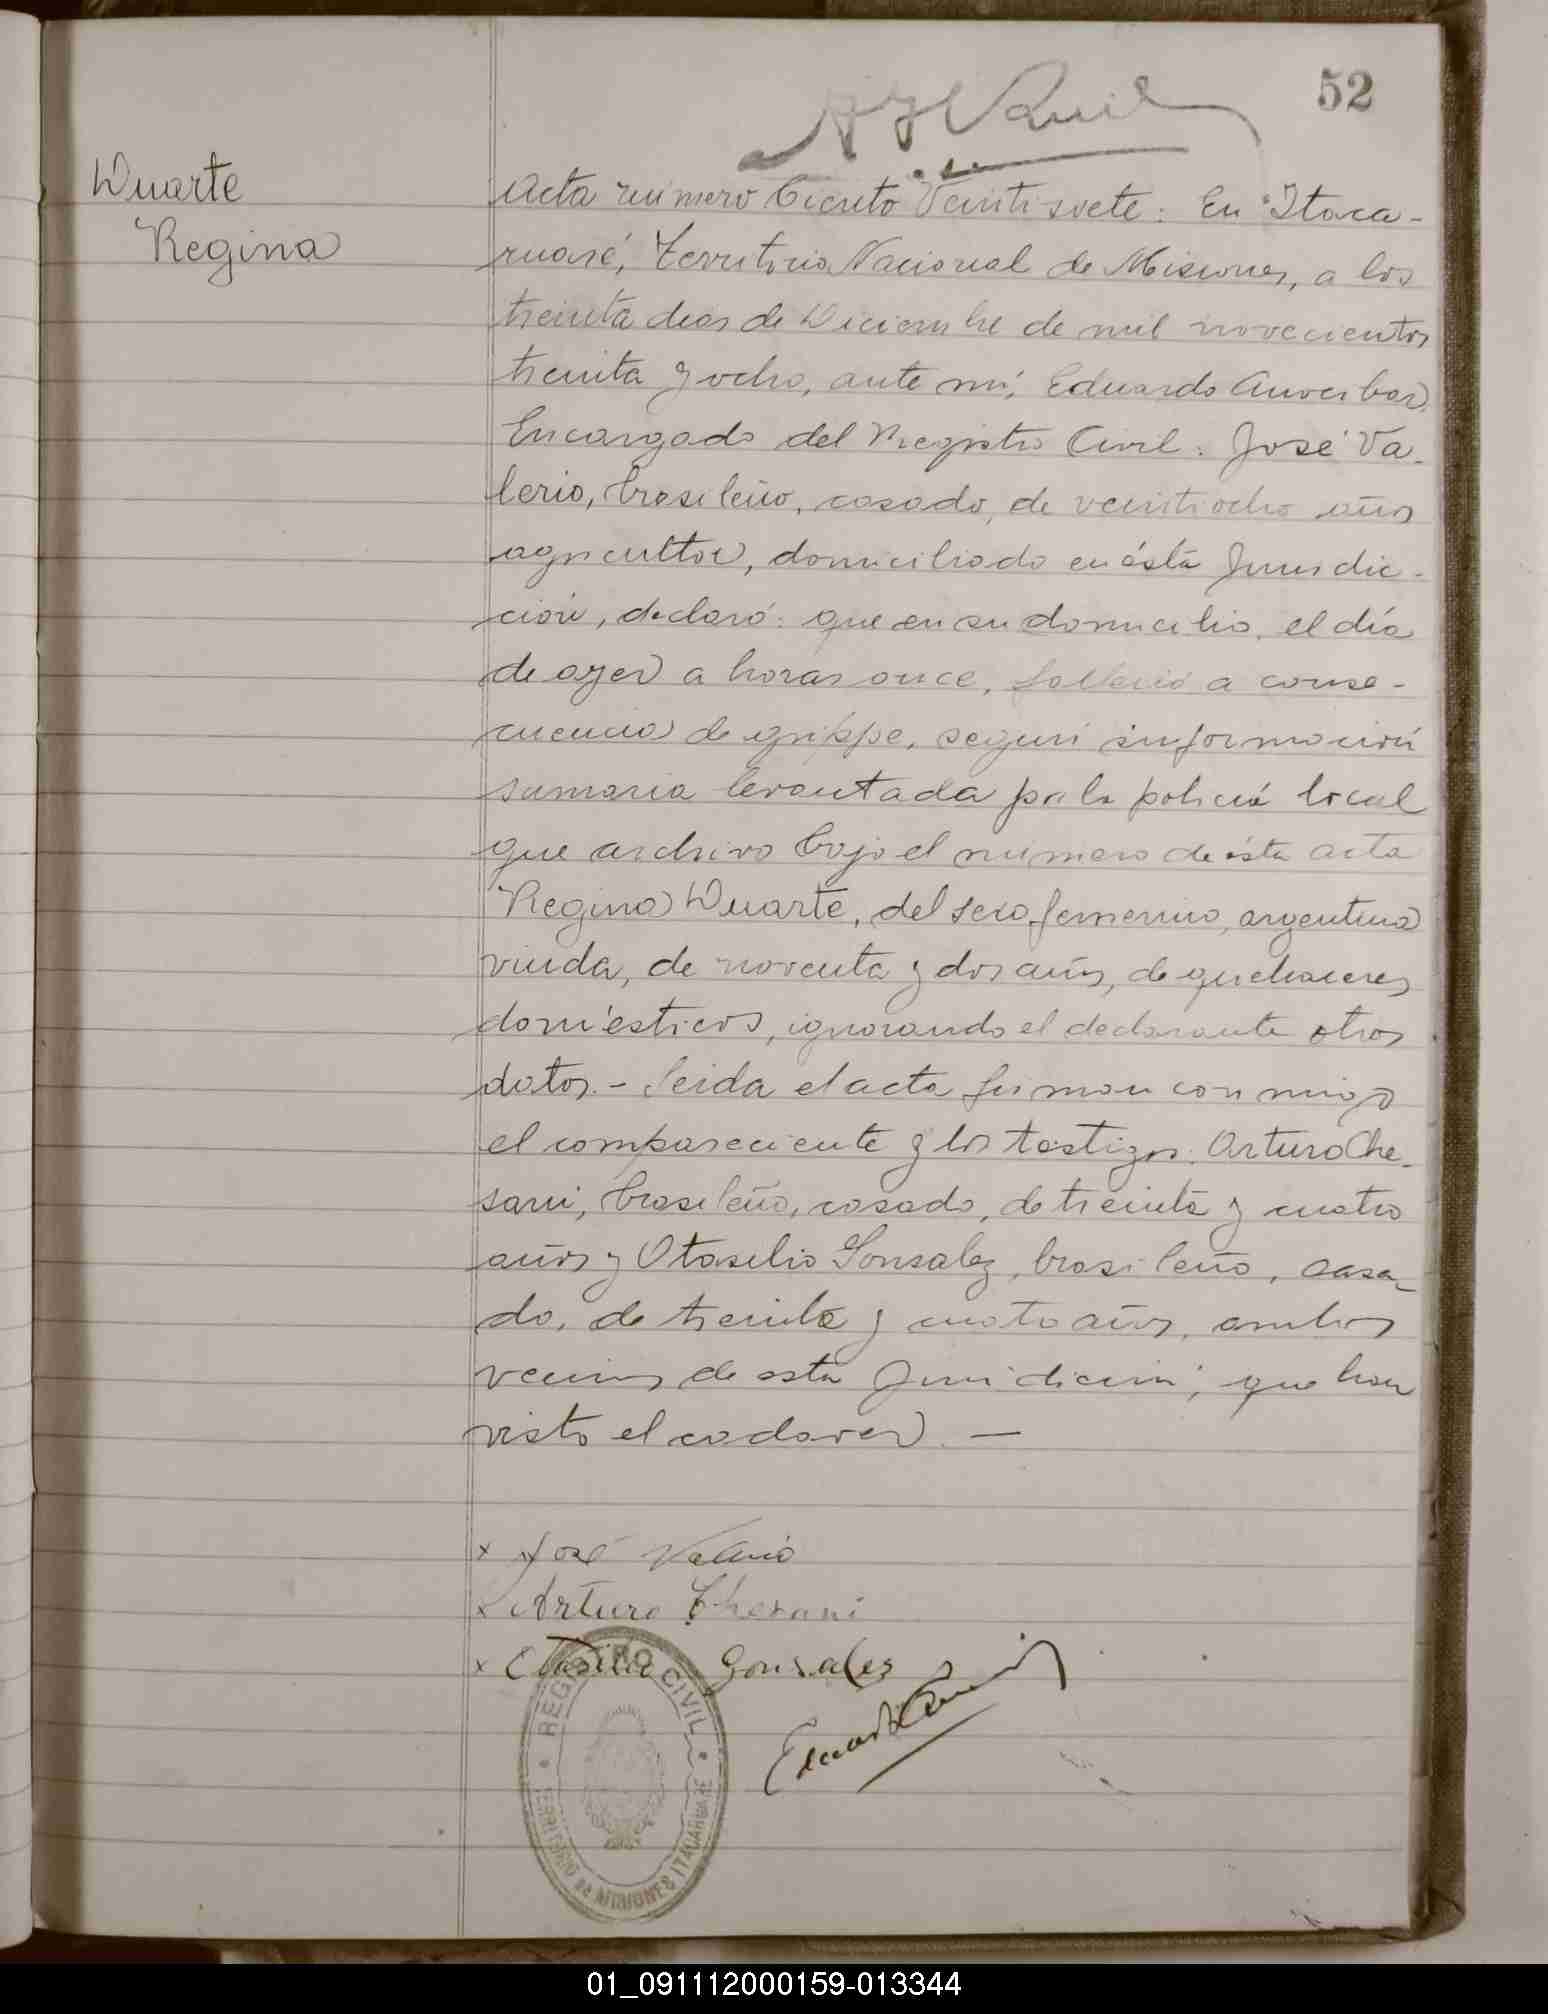 52
Duarte
Regina
Acta número Ciento Veintisiete: En Itaca-
ruaré, Territorio Nacional de Misiones, a los
treinta dias de Diciembre de mil novecientos
treinta y ocho, ante mí, Eduardo
Encargado del Registro Civil: José Va-
lerio, brasileño, casado, de veintiocho años
agricultor, domiciliado en ésta Jurisdic-
ción, declaró: que en su domicilio, el día
de ayer a horas once, falleció a conse-
cuencia de grippe, según información
sumaria levantada por la policía local
que archivo bajo el número de ésta acta
Regina Duarte, del sexo femenino, argentina
viuda, de noventa y dos años, de quehaceres
domésticos, ignorando el declarante otros
datos.- Leida el acta firman conmigo
el compareciente y los testigos: Arturo Che-
sani, brasileño, casado, de treinta y cuatro
años y Otasilio Gonsalez, brasileño, casa-
do, de treinta y cuatro años, ambos
vecinos de esta Juridicción, que han
visto el cadaver. —
x José Valerio
x Arturo Chesani
x Otasilio Gonsales
REGISTRO CIVIL
TERRITORIO DE MISIONES ITACARUARE
01_091112000159-013344